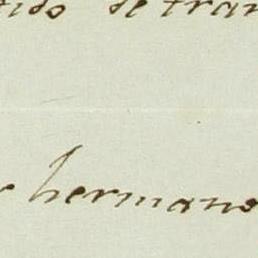 tido se tran
hermano